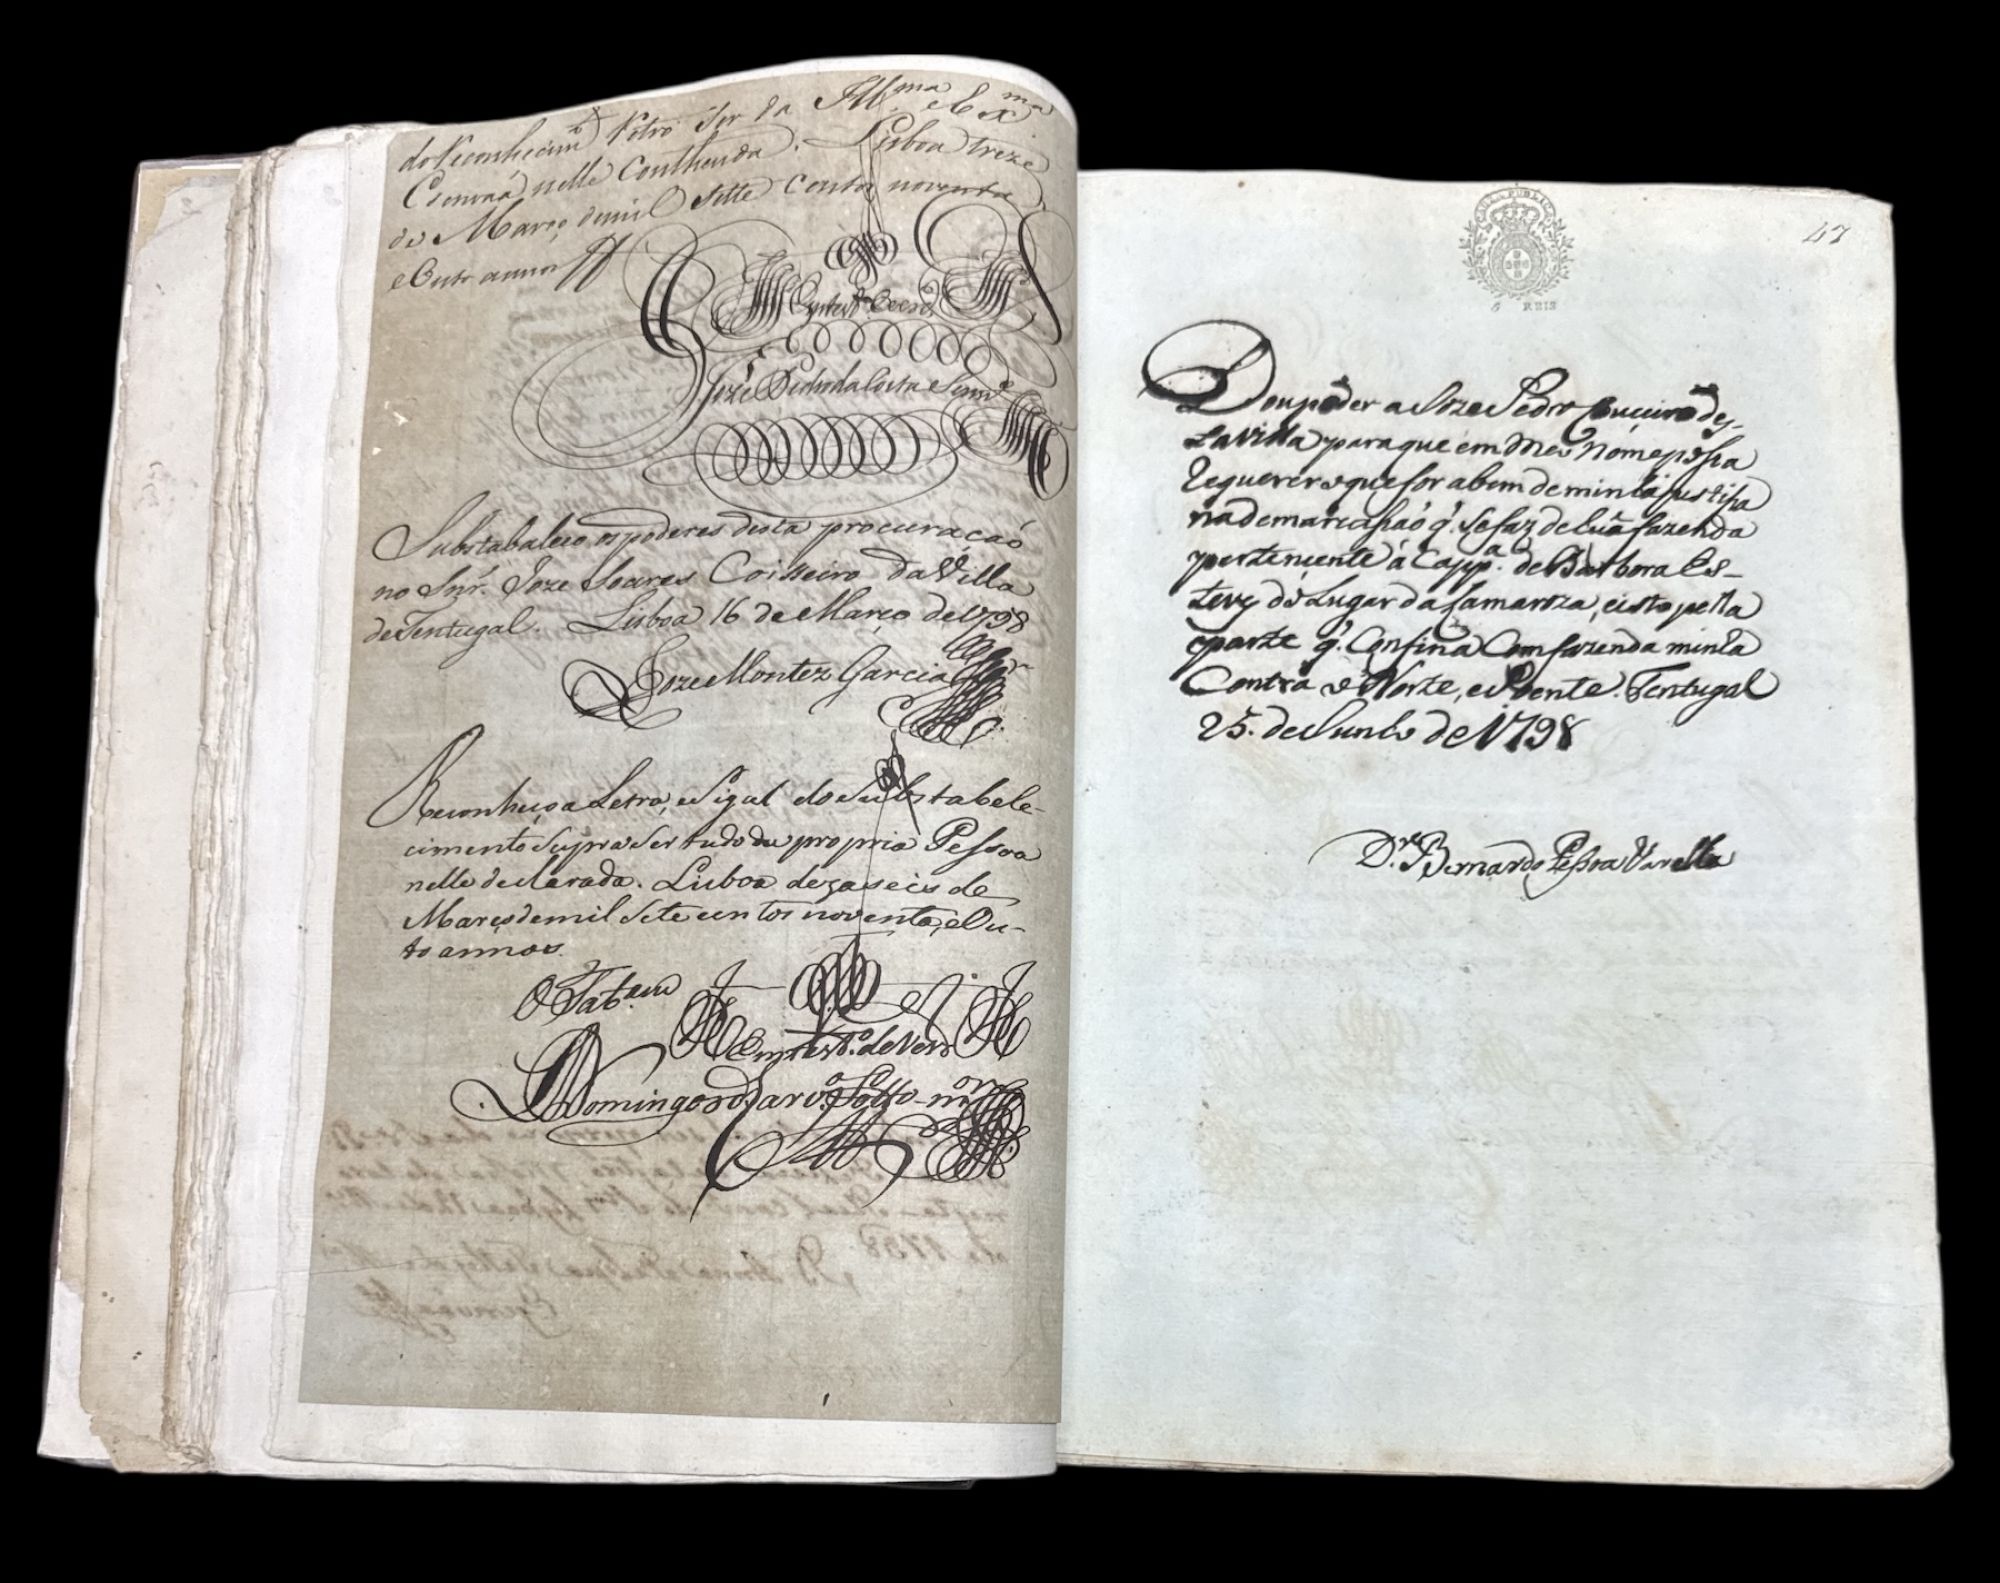 do Reconhecim.to Retro Ser da Ill.ma e Ex.ma
nelle Contheuda. Lisboa treze
de Março de mil Sette centos noventa
e Outo annos
Em test.o de Verd.e
Joze Pedro da Costa
Substabaleco os poderes desta procuração
no Snr. Joze Soares Coisseiro da Villa
de Tentugal. Lisboa 16 de Março de 1798
Joze Montez Garcia
Reconheço a Letra, e Signal do Substabele-
cimento Supra Ser tudo da propria Pessoa
nelle declarada. Lisboa dezaseis de
Março de mil Sete centos noventa, e Ou-
to annos.
O Tab.am
Em test.o de Verd.e
Domingos de Carv.o Sotto-m.or
CAUSA PUBLICA
6 REIS
47
Dou poder a Joze Pedro desta
Villa para que em Meu Nome possa
Requerer o que for a bem de minha justisa
na demarcasaõ q. Se faz de hua fazenda
pertencente á Capp.a de Barbora Es-
teves do Lugar da Camaroza, e isto pella
parte q. Confina Com fazenda minha
Contra o Norte, e Poente. Tentugal
25. de Junho de 1798
D.r Bernardo Pessoa Varella